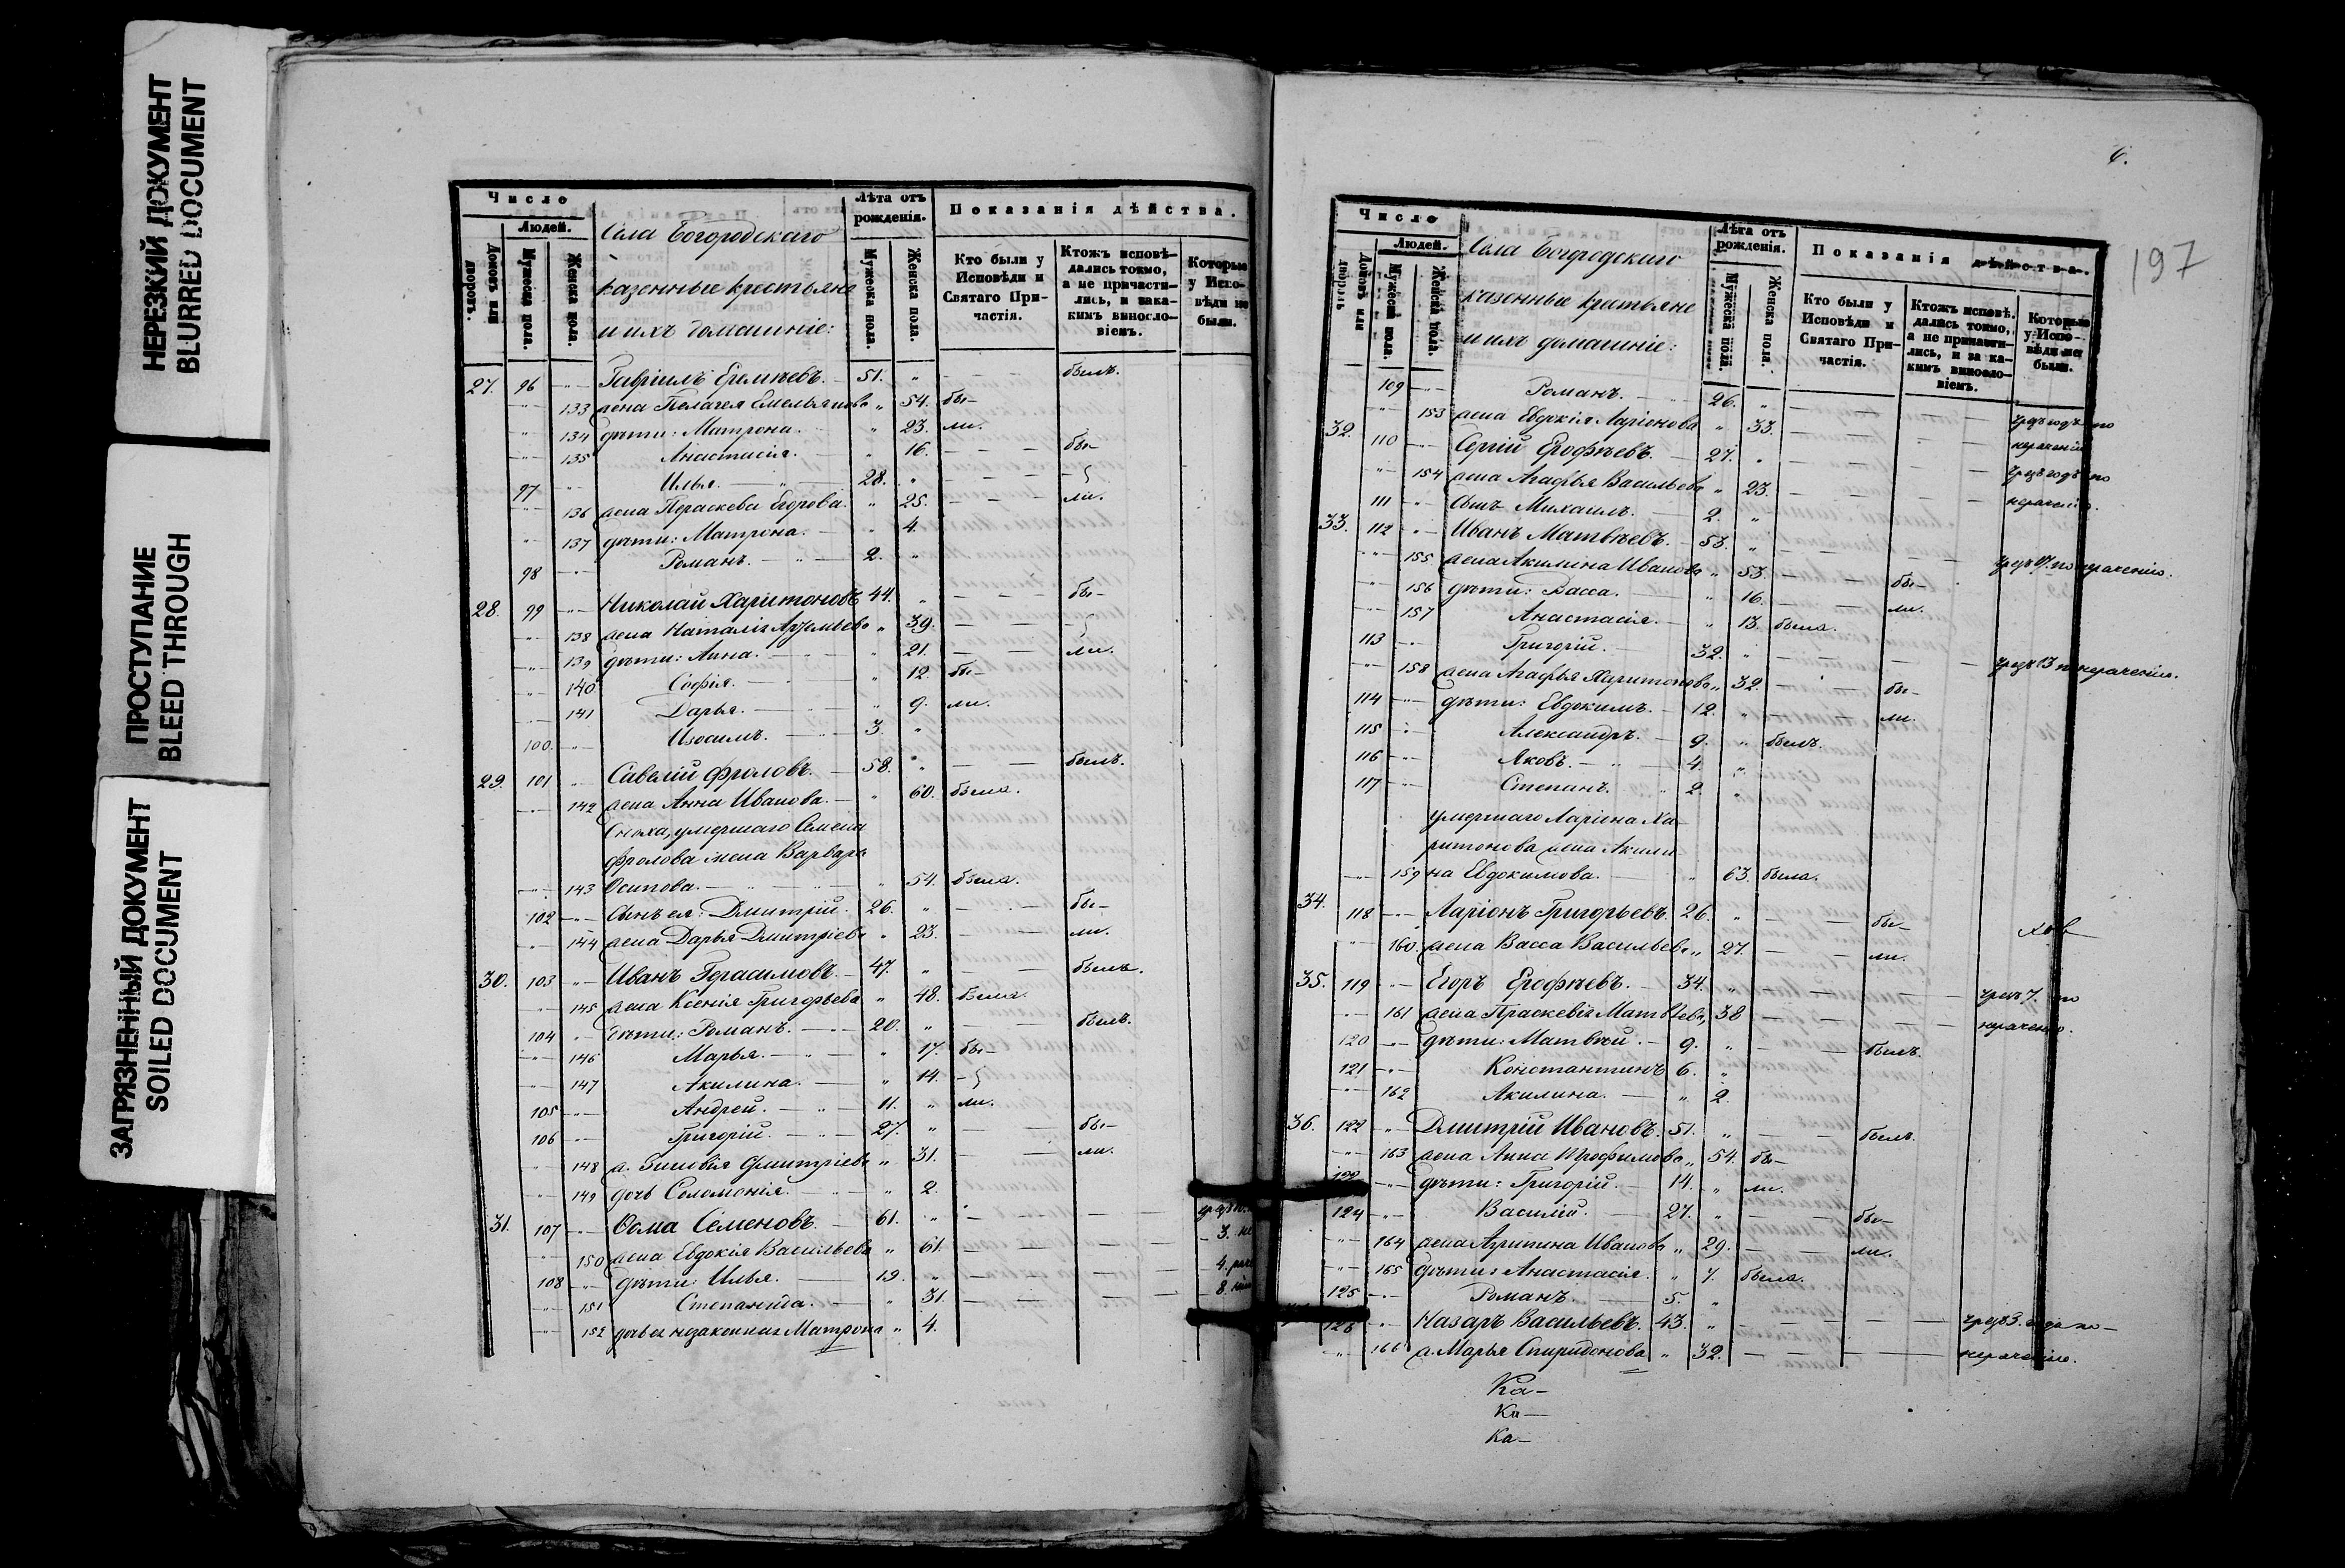 НЕРЕЗКИЙ ДОКУМЕНТ
BLURRED DOCUMENT
ПРОСТУПАНИЕ
BLEED THROUGH
ЗАГРЯЗНЕННЫЙ ДОКУМЕНТ
SOILED DOCUMENT
Число
Людей.
Домовъ или дворовъ.
Мужеска пола.
Женска пола.
Села Богородскаго
казенные крестьяне
и ихъ домашніе:
Лѣта отъ рожденія.
Мужеска пола.
Женска пола.
Показанія дѣйства.
Кто были у Исповѣди и Святаго Причастія.
Ктожъ исповѣдались токмо, а не причастились, и за какимъ винословіемъ.
Которые у Исповѣди не были.
27. 96 Гавріилъ Еремѣевъ. 51. былъ.
133 жена Пелагея Емельянова 54. бы-
134 дѣти: Матрона. 23. ли.
135 Анастасія. 16. бы-
97 Илья. 28.
136 жена Параскева Егорова. 25. ли.
137 дѣти: Матрона. 4.
98 Романъ. 2.
28. 99 Николай Харитоновъ 44. бы-
138 жена Наталія 39.
139 дѣти: Анна. 21. ли.
140 Софія. 12 бы-
141 Дарья. 9. ли.
100. Изосимъ. 3.
29. 101 Савелій Фроловъ. 58. былъ.
142 жена Анна Иванова. 60. была.
Сноха, умершаго Семена
Фролова жена Варвара
143 Осипова. 54. была.
102 Сынъ ея: Дмитрій. 26. бы-
144 жена Дарья Дмитріева 23. ли.
30. 103 Иванъ Герасимовъ. 47. былъ.
145 жена Ксенія Григорьева 48. была.
104 дѣти: Романъ. 20. былъ.
146 Марья. 17. бы-
147 Акилина. 14.
105 Андрей. 11. ли.
106 Григорій. 27. бы-
148 ж. Зиновія Дмитріева 31. ли.
149 дочь Соломонія. 2.
31. 107 Ѳома Семеновъ. 61.
150 жена Евдокія Васильева 61. 3.
108 дѣти: Илья. 19. 4.
151 Степанида. 31. 8.
152 дочь ея незаконная Матрона 4.
6.
197
Число
Людей.
Домовъ или дворовъ
Мужеска пола.
Женска пола.
Села Богородскаго
казенные крестьяне
и ихъ домашніе:
Лѣта отъ рожденія.
Мужеска пола.
Женска пола.
Показанія дѣйства.
Кто были у Исповѣди и Святаго Причастія.
Ктожъ исповѣдались токмо, а не причастились, и за какимъ винословіемъ.
Которые у Исповѣди не были.
109 Романъ. 26.
153 жена Евдокія Ларіонова 33. чрезъ годъ по
32. 110 Сергій Ерофѣевъ. 27. нераченію
154 жена Агафья Васильева 23. чрезъ годъ по
111 сынъ Михаилъ. 2. нераченію.
33. 112 Иванъ Матвѣевъ. 53.
155 жена Акилина Иванова 53. бы-
156 дѣти: Васса. 16. ли.
157 Анастасія. 13. была.
113 Григорій. 32.
158 жена Агафья Харитонова 32. бы-
114 дѣти: Евдокимъ. 12. ли.
115 Александръ. 9. былъ.
116 Яковъ. 4.
117 Степанъ. 2.
умершаго Ларіона Ха-
ритонова жена Акили-
159 на Евдокимова. 63. была.
34. 118 Ларіонъ Григорьевъ. 26. бы-
160. жена Васса Васильева 27. ли.
35. 119 Егоръ Ерофѣевъ. 34. чрезъ 7. по
161 жена Праскевія Матвѣева, 38 нераченію.
120 дѣти: Матвѣй. 9. былъ.
121 Константинъ 6.
162 Акилина. 2.
36. 122 Дмитрій Ивановъ. 51. былъ.
163 жена Анна Трофимова 54. бы-
дѣти: Григорій. 14. ли.
124 Василій. 27. бы-
164 жена Агрипина Иванова 29. ли.
165 дѣти: Анастасія. 7. была.
125 Романъ. 5.
126 Назаръ Васильевъ. 43. чрезъ 3. года по-
166 ж. Марья Спиридонова 32. нераченію.
Ка-
Ка-
Ка-